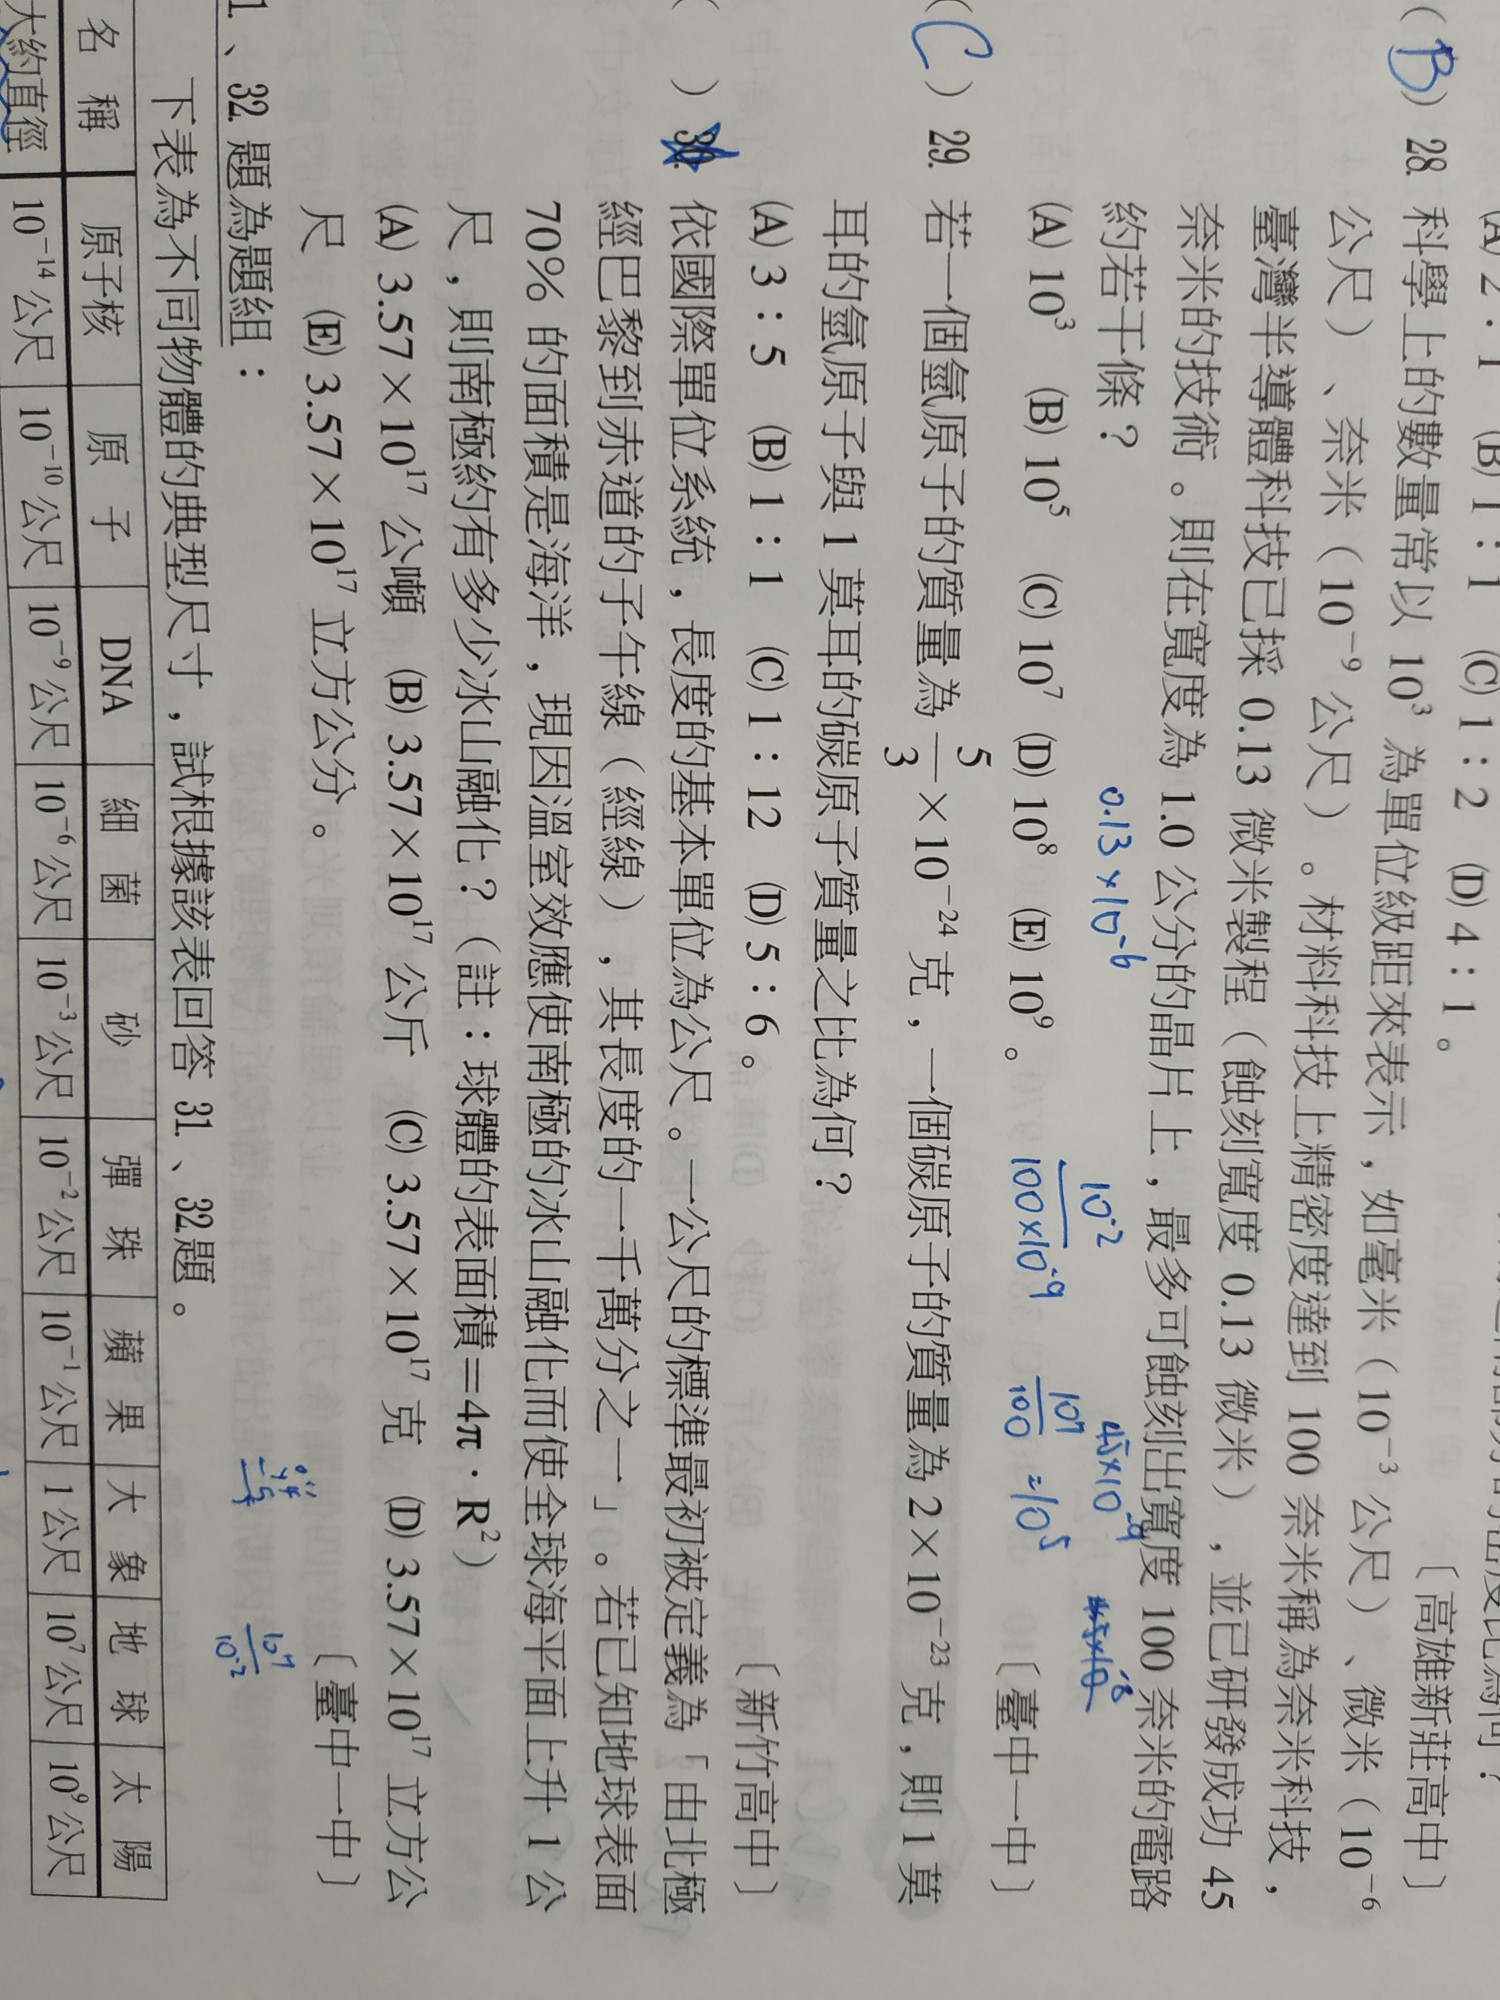 (A) 2：1　(B) 1：1　(C) 1：2　(D) 4：1。
〔高雄新莊高中〕
(B) 28. 科學上的數量常以 10³ 為單位級距來表示，如毫米（10⁻³ 公尺）、微米（10⁻⁶
公尺）、奈米（10⁻⁹ 公尺）。材料科技上精密度達到 100 奈米稱為奈米科技，
臺灣半導體科技已採 0.13 微米製程（蝕刻寬度 0.13 微米），並已研發成功 45
奈米的技術。則在寬度為 1.0 公分的晶片上，最多可蝕刻出寬度 100 奈米的電路
約若干條？
0.13×10⁻⁶
10⁻²
100×10⁻⁹
45×10⁻⁹
10⁷
100
=10⁵
(A) 10³　(B) 10⁵　(C) 10⁷　(D) 10⁸　(E) 10⁹。
〔臺中一中〕
(C) 29. 若一個氫原子的質量為 5/3 ×10⁻²⁴ 克，一個碳原子的質量為 2×10⁻²³ 克，則 1 莫
耳的氫原子與 1 莫耳的碳原子質量之比為何？
(A) 3：5　(B) 1：1　(C) 1：12　(D) 5：6。
〔新竹高中〕
(　) 30. 依國際單位系統，長度的基本單位為公尺。一公尺的標準最初被定義為「由北極
經巴黎到赤道的子午線（經線），其長度的一千萬分之一」。若已知地球表面
70% 的面積是海洋，現因溫室效應使南極的冰山融化而使全球海平面上升 1 公
尺，則南極約有多少冰山融化？（註：球體的表面積＝4π．R²）
(A) 3.57×10¹⁷ 公噸　(B) 3.57×10¹⁷ 公斤　(C) 3.57×10¹⁷ 克　(D) 3.57×10¹⁷ 立方公
尺　(E) 3.57×10¹⁷ 立方公分。
〔臺中一中〕
1、32. 題為題組：
10⁷
10⁻²
下表為不同物體的典型尺寸，試根據該表回答 31.、32.題。
名稱　原子核　原子　DNA　細菌　砂　彈珠　蘋果　大象　地球　太陽
大約直徑　10⁻¹⁴ 公尺　10⁻¹⁰ 公尺　10⁻⁹ 公尺　10⁻⁶ 公尺　10⁻³ 公尺　10⁻² 公尺　10⁻¹ 公尺　1 公尺　10⁷ 公尺　10⁹ 公尺